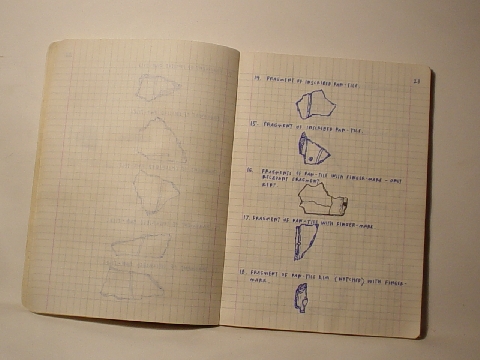 14. FRAGMENT OF INSCRIBED PAN-TILE.
15. FRAGMENT OF INSCRIBED PAN-TILE.
16. FRAGMENTS OF PAN-TILE WITH FINGER-MARK -
FRAGMENT
RIM?
17. FRAGMENT OF PAN-TILE WITH FINGER-MARK.
18. FRAGMENT OF PAN-TILE RIM (NOTCHED) WITH FINGER-
MARK.